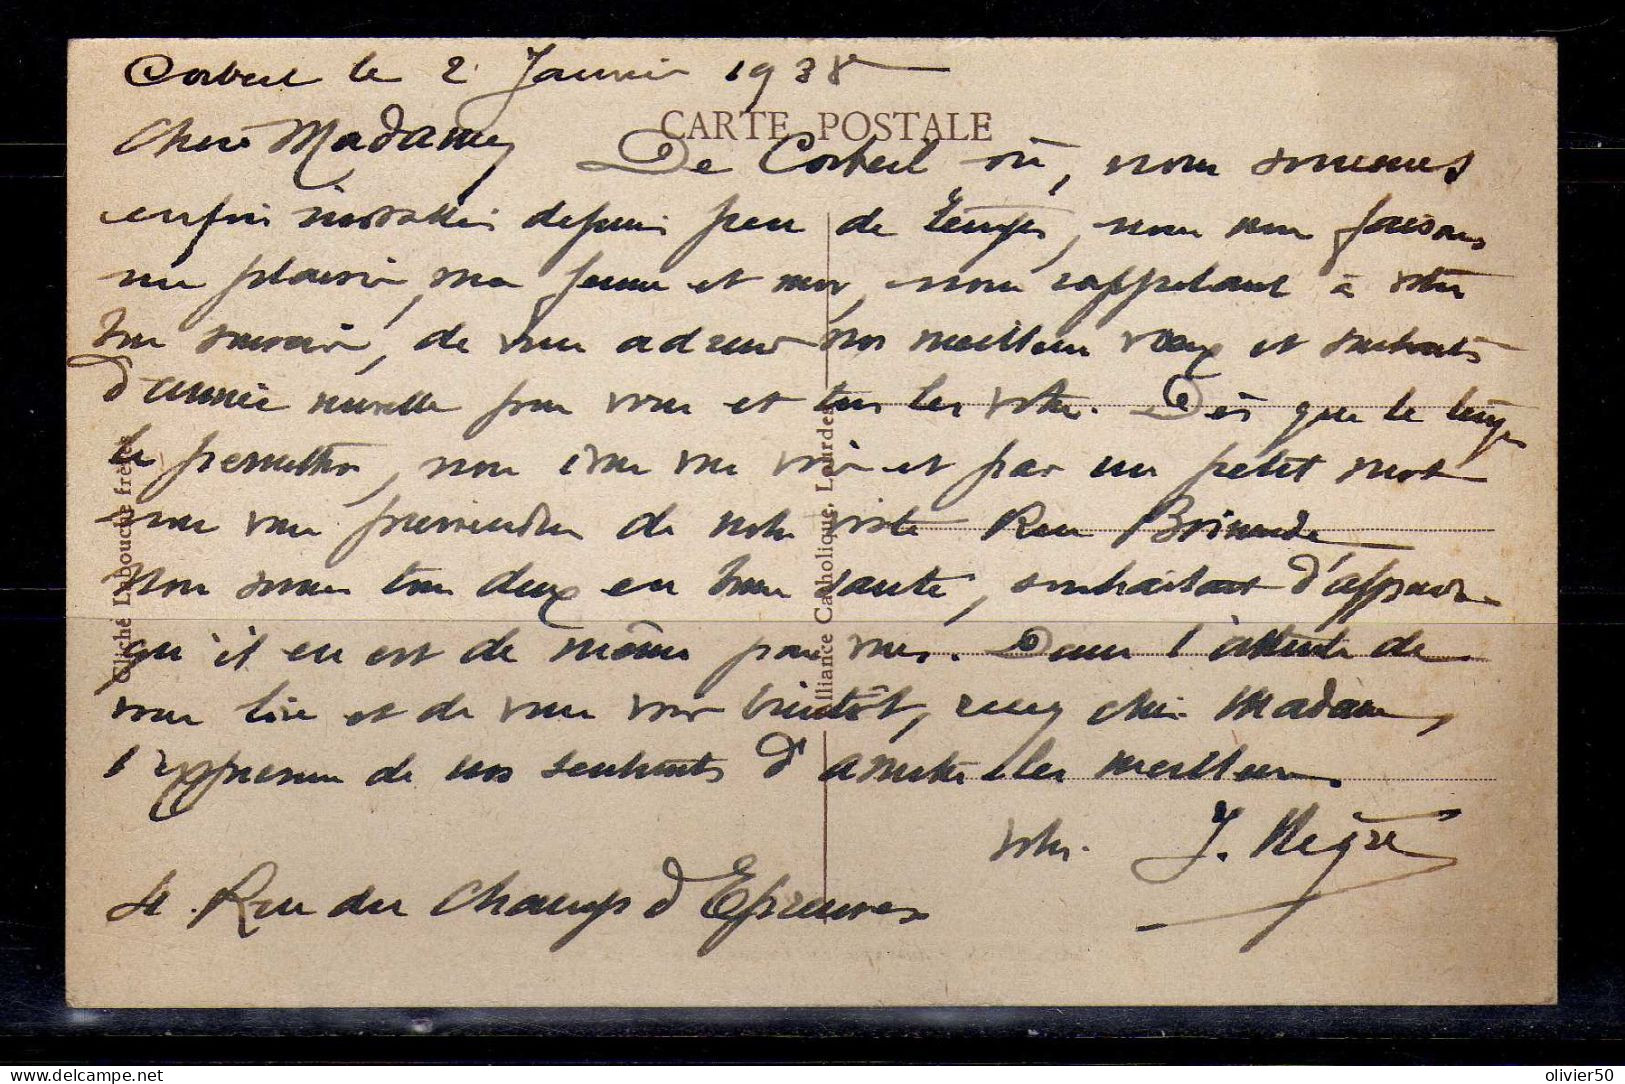 Corbeil le 2 Janvier 1938
CARTE POSTALE
Chère Madame, De Corbeil où, nous sommes
enfin installés depuis peu de temps, nous nous faisons
un plaisir, ma femme et moi, nous rappelant à votre
bon souvenir, de vous adresser nos meilleurs vœux et souhaits
d'année nouvelle pour vous et tous les vôtres. Dès que le temps
le permettra, nous irons vous voir et par un petit mot
nous vous préviendrons de notre visite Rue
Nous sommes tous deux en bonne santé, souhaitant d'apprendre
qu'il en est de même pour vous. Dans l'attente de
vous lire et de vous voir bientôt, recevez chère Madame,
l'expression de nos sentiments d'amitié les meilleurs.
votre J. Nègre
4 Rue du Champ d'Epreuves
Cliché Labouche frères
Alliance Catholique, Lourdes
olivier50